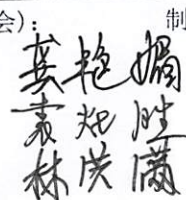 会）： 制
龚艳媚
袁炬胜
林洪满